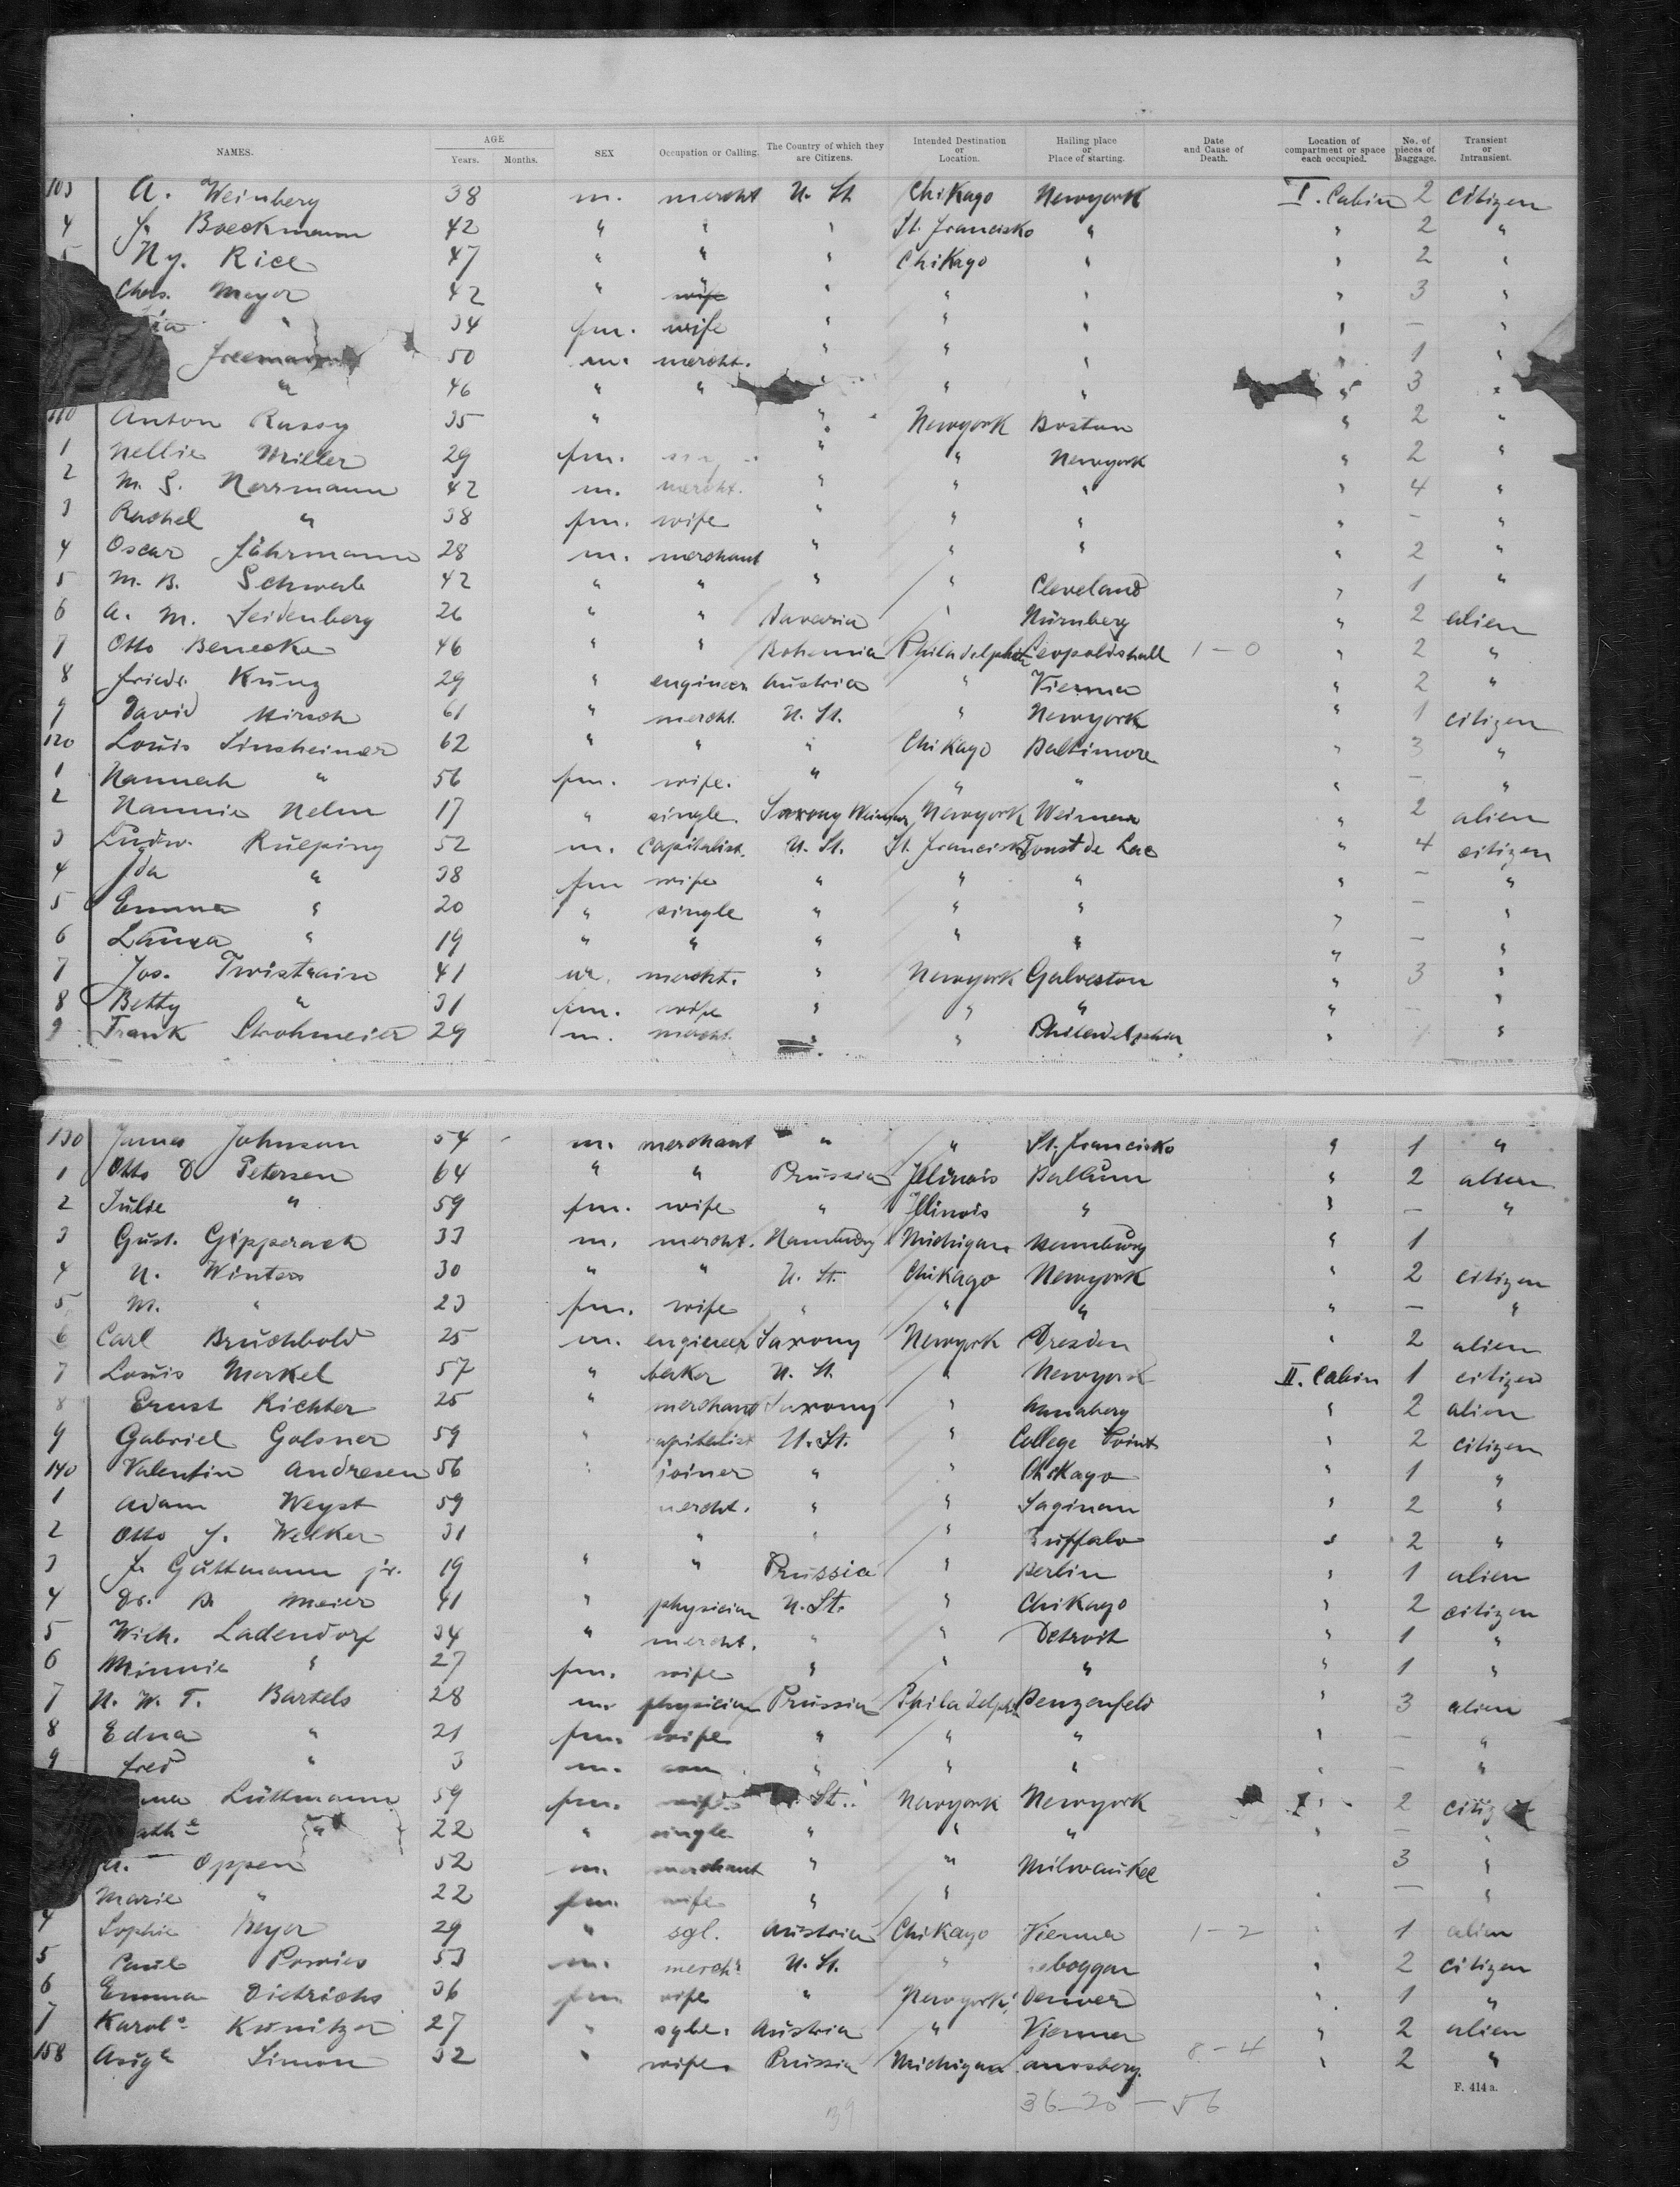 NAMES. AGE Years. Months. SEX Occupation or Calling. The Country of which they are Citizens. Intended Destination or Location. Hailing place or Place of starting. Date and Cause of Death. Location of compartment or space each occupied. No. of pieces of Baggage. Transient or Intransient.
103 A. Weinberg 38 m. mercht U. St. Chikago Newyork I. Cabin 2 citizen
4 J. Boeckmann 42 " " " St. Francisko " " 2 "
5 Ny. Rice 47 " " " Chikago " " 2 "
Chas. Meyer 42 " wife " " " " 3 "
" 34 fm. wife " " " " — "
Freemann 50 m. mercht. " " " " 1 "
" 46 " " " " " " 3 "
110 Anton Russy 35 " " Newyork Boston " 2 "
1 Nellie Miller 29 fm. " " Newyork " 2 "
2 M. S. Herrmann 42 m. mercht. " " " " 4 "
3 Rachel " 38 fm. wife " " " " — "
4 Oscar Fährmann 28 m. merchant " " " " 2 "
5 M. B. Schwab 42 " " " " Cleveland " 1 "
6 A. M. Seidenberg 26 " " Bavaria " Nürnberg " 2 alien
7 Otto Benecke 46 " " Bohemia Philadelphia Leopoldshall 1-0 " 2 "
8 Friedr. Kunz 29 " engineer Austria " Vienna " 2 "
9 David Hirsch 61 " mercht. U. St. " Newyork " 1 citizen
120 Louis Sinsheimer 62 " " " Chikago Baltimore " 3 "
1 Hannah " 56 fm. wife. " " " " — "
2 Nannie Helm 17 " single. Saxony Weimar Newyork Weimar " 2 alien
3 Ludw. Rueping 52 m. capitalist. U. St. St. Francisko Fonst de Lac " 4 citizen
4 Ida " 38 fm wife " " " " — "
5 Emma " 20 " single " " " " — "
6 Laura " 19 " " " " " " — "
7 Jos. 41 m. mercht. " Newyork Galveston " 3 "
8 Betty " 31 fm. wife " " " " — "
9 Frank Strohmeier 29 m. mercht. " " Philadelphia " 1 "
130 James Johnson 54 - m. merchant " " St. Francisko " 1 "
1 Otto D Petersen 64 " " Prussia Illinois Ballum " 2 alien
2 Julie " 59 fm. wife " Illinois " " — "
3 Gust. Gipperach 33 m. mercht. Hamburg Michigan Hamburg " 1
4 H. Winters 30 " " U. St. Chikago Newyork " 2 citizen
5 M. " 23 fm. wife " " " " — "
6 Carl Bruchbold 25 m. engineer Saxony Newyork Dresden " 2 alien
7 Louis Merkel 57 " baker U. St. " Newyork II. Cabin 1 citizen
8 Ernst Richter 25 " merchant Saxony " Annaberg " 2 alien
9 Gabriel Golsner 59 " capitalist U. St. " College Point " 2 citizen
140 Valentin Andresen 56 " joiner " " Chikago " 1 "
1 Adam Weyst 59 mercht. " " Saginaw " 2 "
2 Otto J. Welker 31 " " " Buffalo " 2 "
3 J. Guttmann jr. 19 " " Prussia " Berlin " 1 alien
4 Dr. B. Meier 41 " physician U. St. " Chikago " 2 citizen
5 Wich. Ladendorf 34 " mercht. " " Detroit " 1 "
6 Minnie " 27 fm. wife " " " " 1 "
7 H. W. T. Bartels 28 m. physician Prussia Philadelph. " 3 alien
8 Edna " 21 fm. wife " " " " — "
9 Fred " 3 m. son " " " " — "
Lüttmann 59 fm. wife St. Newyork Newyork I " 2 citiz
" 22 " single " " " " — "
Oppen 52 m. merchant " " Milwaukee 3 "
Marie " 22 fm. wife " " " — "
4 Sophie Beyer 29 " sgl. Austria Chikago Vienna 1-2 " 1 alien
5 Paul 53 m. mercht U. St. " eboggan " 2 citizen
6 Emma Dietrichs 36 fm wife " Newyork Denver " 1 "
7 Karole Kunitzer 27 " sgle. Austria " Vienna " 2 alien
158 Augte Simon 32 " wife. Prussia Michigan 8-4 " 2 "
F. 414 a.
39 36-20-56